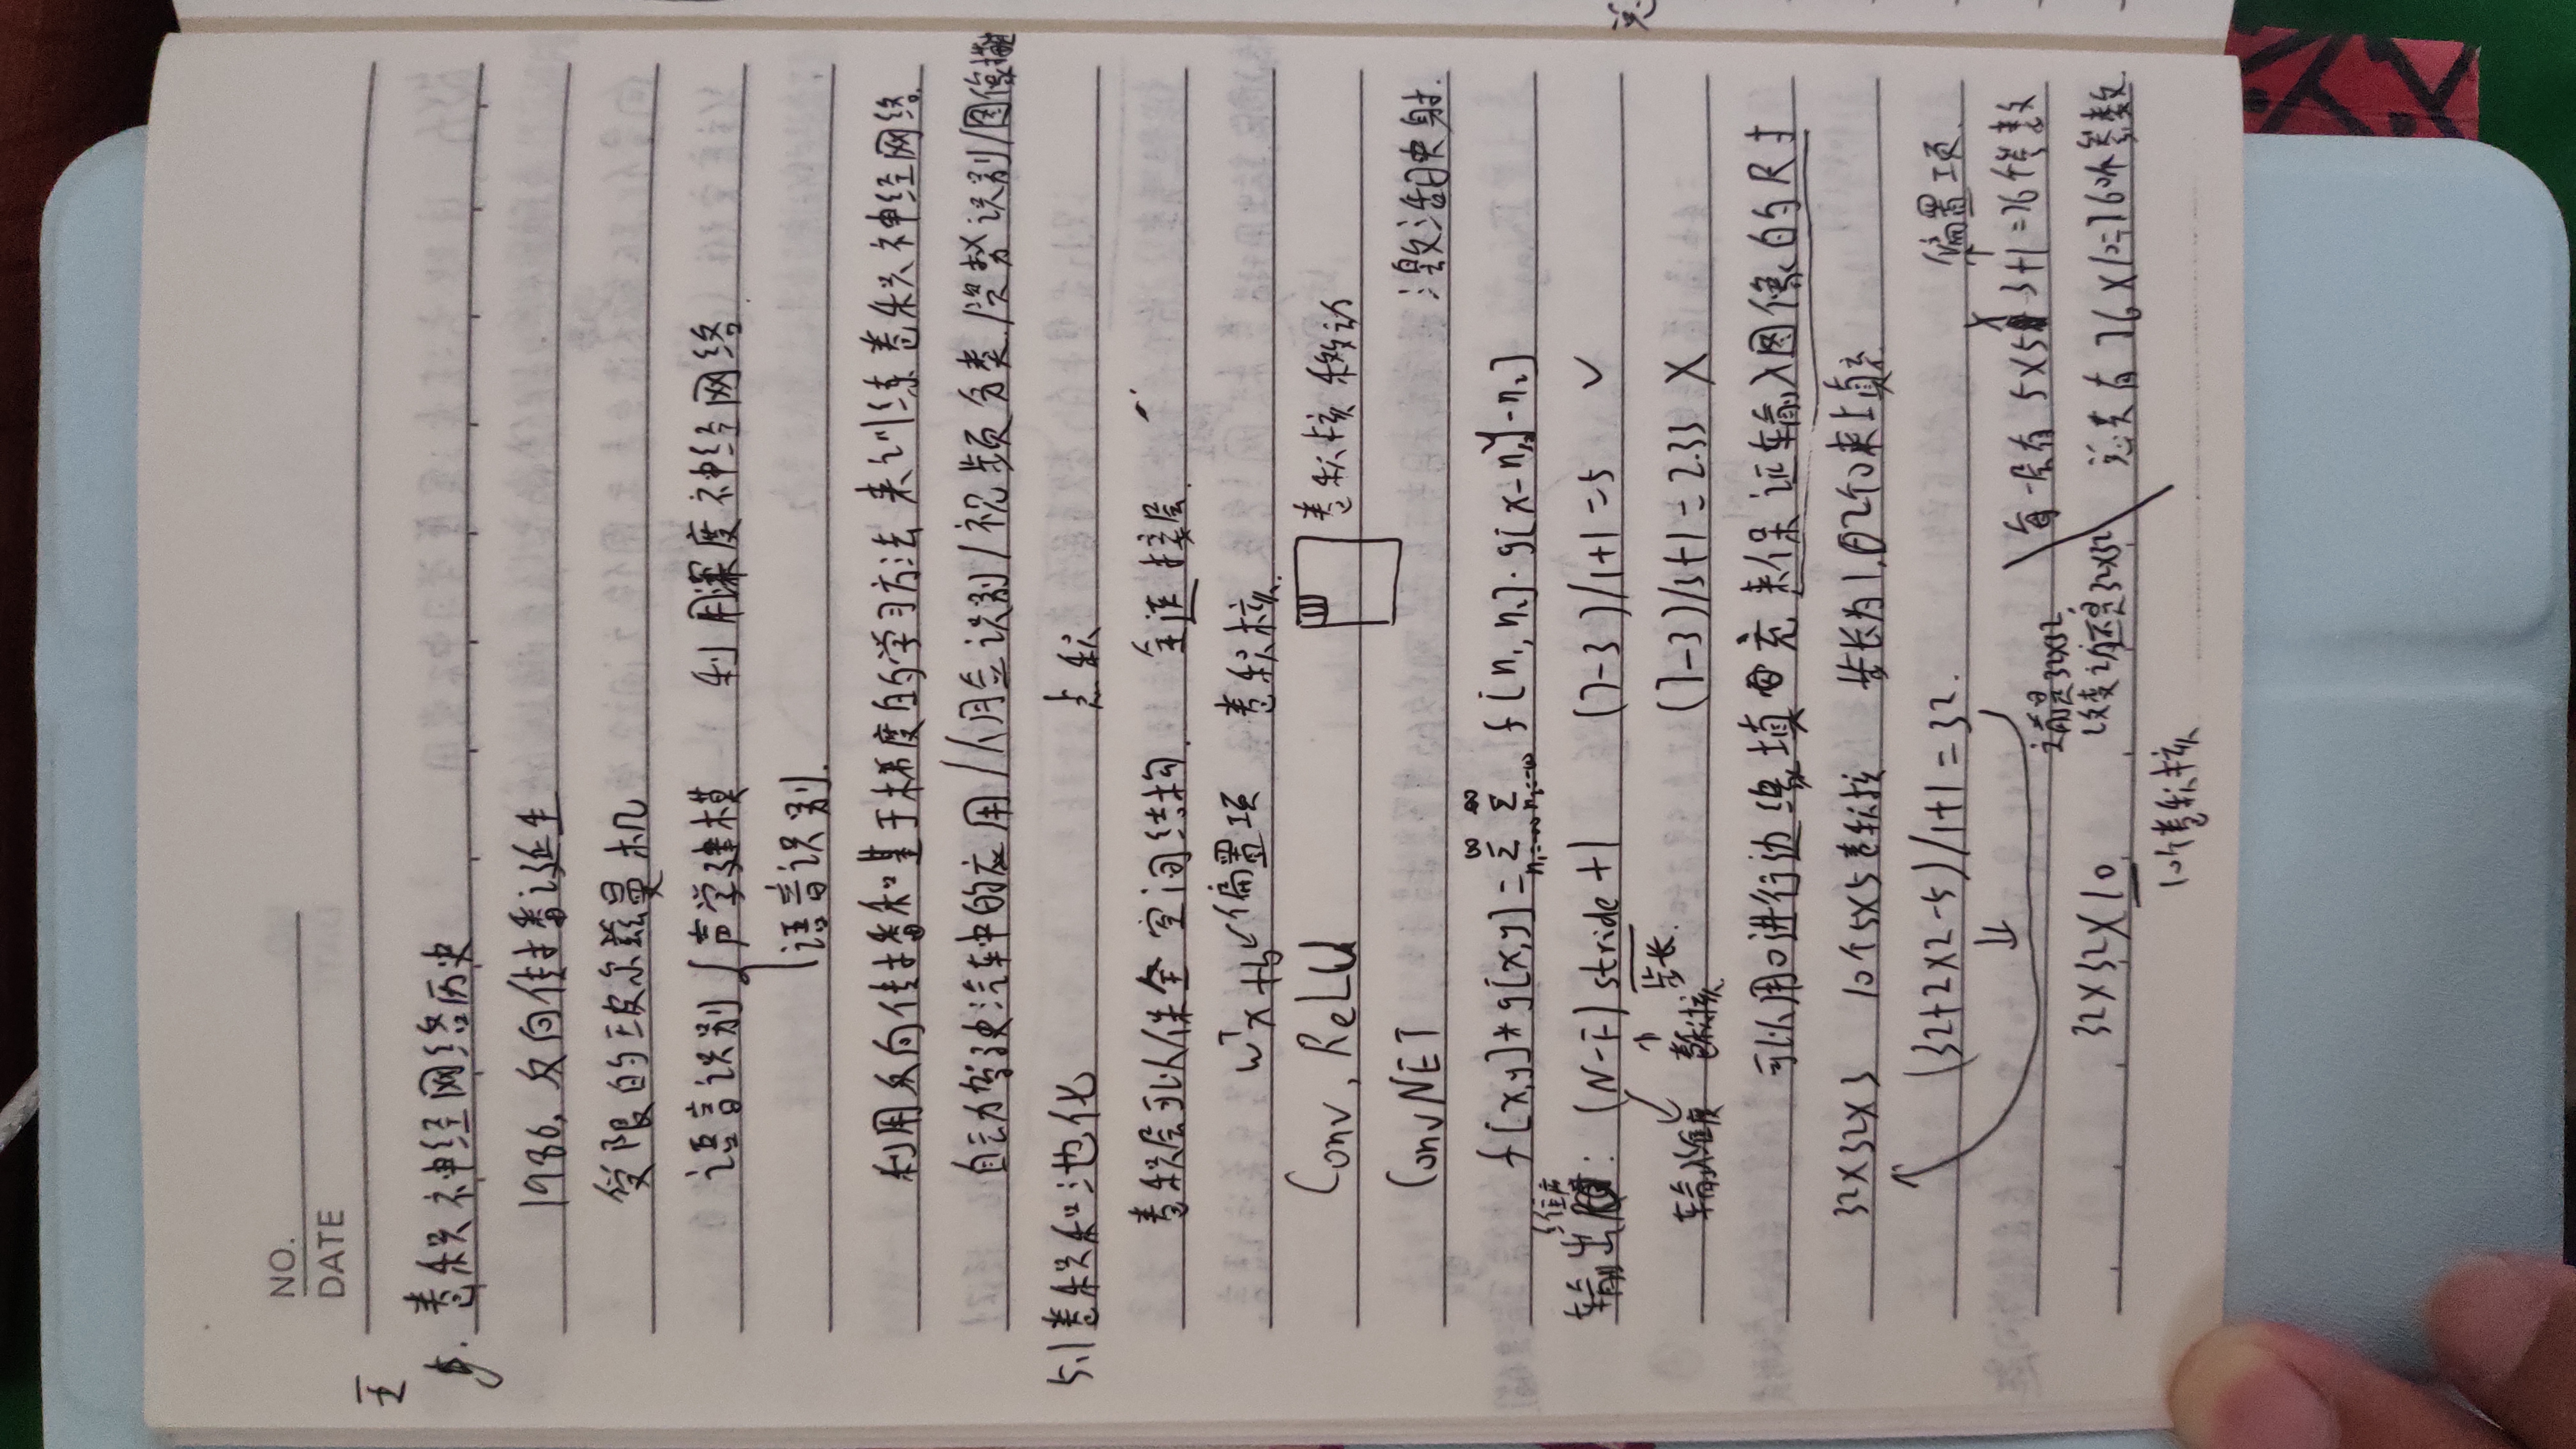 NO.
DATE
五
5. 卷积神经网络历史
1986, 反向传播诞生
受限的玻尔兹曼机
语言识别 { 声学建模 利用深度神经网络
语言识别.
利用反向传播和基于梯度的学习方法来训练卷积神经网络.
自动驾驶汽车中的应用/人脸识别/视频分类/姿势识别/图像
5.1 卷积和池化 点积
卷积层可以保全空间结构. 全连接层.
wᵀx+b ↙偏置项 卷积核.
Conv, ReLU 卷积核移动
ConvNET 激活映射.
f[x,y]*g[x,y]=Σ Σ f[n₁,n₂]·g[x-n₁,y-n₂]
输出维度: (N-F)/stride+1 (7-3)/1+1=5 ✓
输入维度 卷积核 步长. (7-3)/3+1=2.33 ×
可以用0进行边缘填充来保证输入图像的尺寸
32×32×3 10个5×5卷积核 步长为1,用2个0来填充.
(32+2×2-5)/1+1=32. 偏置项.
每一层有5×5×3+1=76个参数
之前是32×32
改变之后还是32×32 总共有76×10=760个参数
32×32×10
10个卷积核